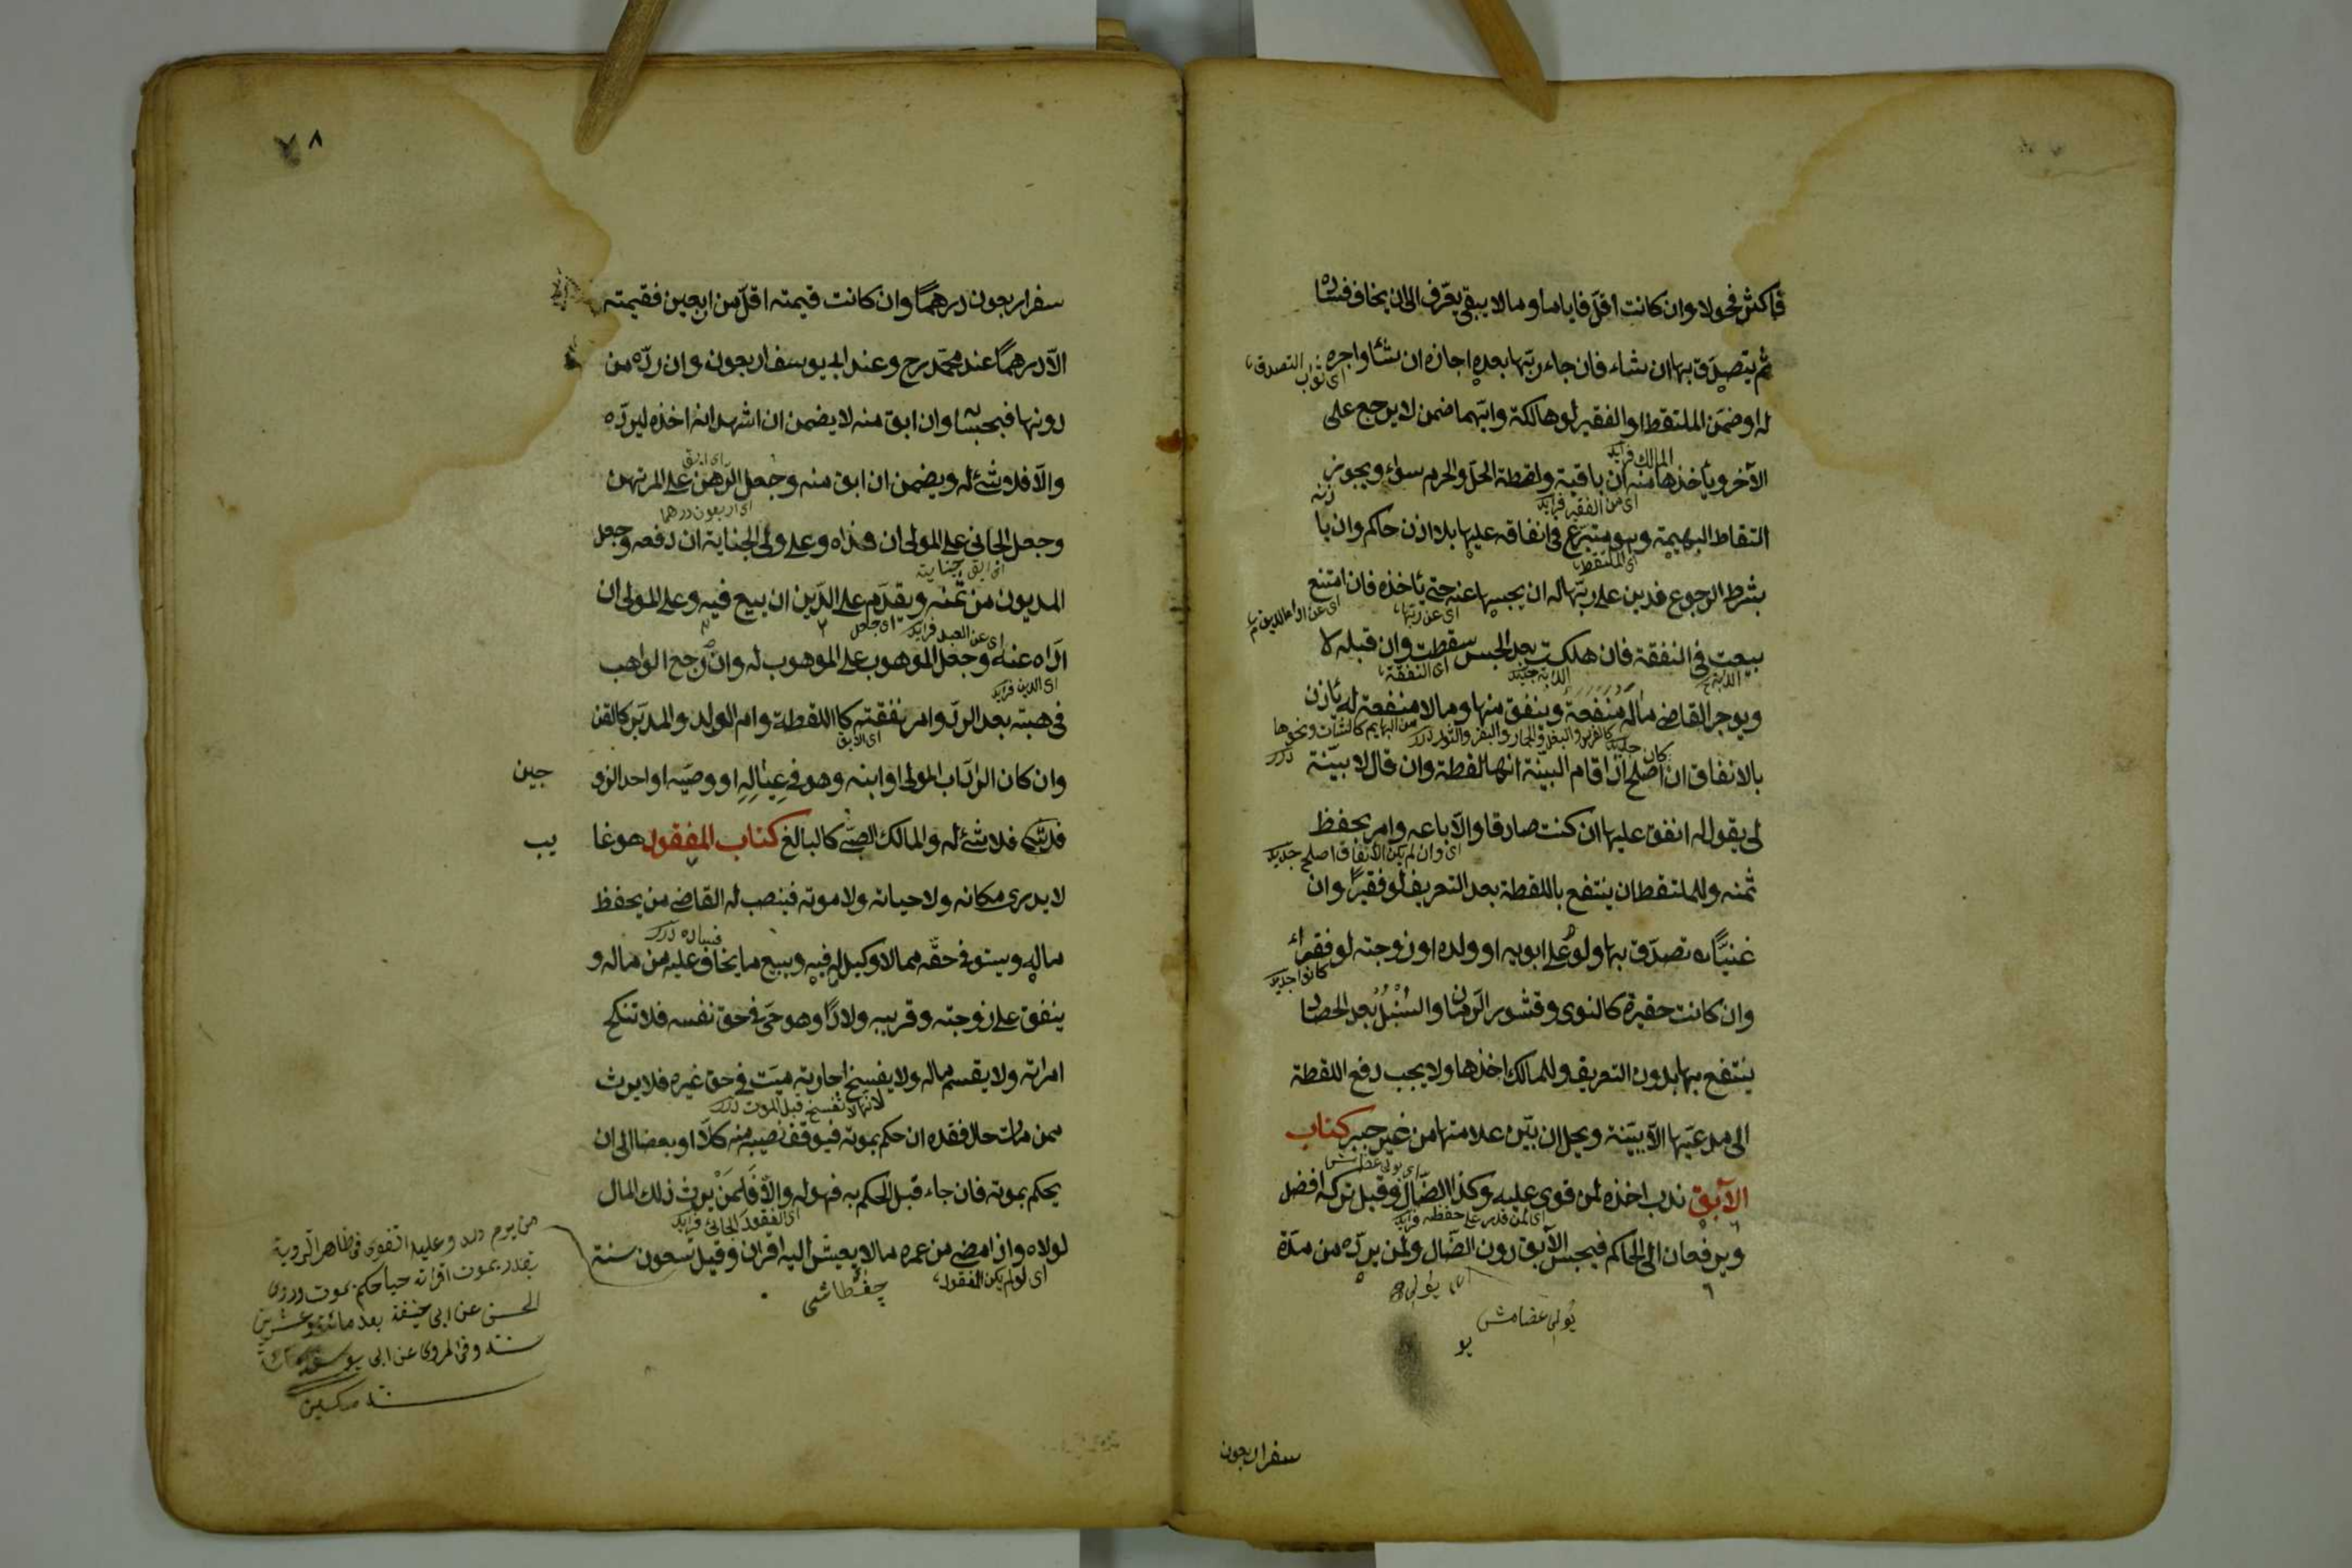 فاكثر فحولا وان كانت اقلّ فاياما وما لا يبقى يعرّف الى ان يخاف فساده
ثم يتصدّق بها ان شاء فان جاء ربّها بعده اجازه ان شاء واجره
اى ثواب التصدق
له او ضمّن الملتقط او الفقير لو هالكة وايّهما ضمن لا يرجع على
المالك فرايد
الآخر ويأخذها منه ان باقية ولقطة الحلّ والحرم سواء ويجوز
اى من الفقير فرايد
التقاط البهيمة وهو متبرّع فى انفاقه عليها بلا اذن حاكم وان باذنه
اى الملتقط
بشرط الرجوع فدين على ربّها له ان يحبسها عنه حتى يأخذه فان امتنع
اى عن ربّها
بيعت فى النفقة فان هلكت بعد الحبس سقطت وان قبله لا
اى النفقة
ويوجر القاضى ما له منفعة وينفق منها وما لا منفعة له يأذن
كالفرس والبغل والحمار والبقر والثور درر من البهايم كالشاة ونحوها درر
كان جديد
بالانفاق ان اصلح اذا اقام البيّنة انها لقطة وان قال لا بيّنة
لى يقول له انفق عليها ان كنت صادقا والّا باعه وامر بحفظ
اى وان لم يكن الانفاق اصلح جديد
ثمنه وللملتقط ان ينتفع باللقطة بعد التعريف لو فقيرًا وان
غنيًّا تصدّق بها ولو على ابويه او ولده او زوجته لو فقراء
كانوا جديد
وان كانت حقيرة كالنوى وقشور الرمان والسنبل بعد الحصاد
ينتفع بها بدون التعريف وللمالك اخذها ولا يجب دفع اللقطة
الى مدعيّها الّا ببيّنة ويحل ان بيّن علامتها من غير جبر كتاب
الآبق ندب اخذه لمن قوى عليه وكذا الضّال وقيل تركه افضل
اى لمن قدر على حفظه فرايد
ويرفعان الى الحاكم فيحبس الآبق دون الضّال ولمن يردّه من مدّة
سفر اربعون
٨
سفر اربعون درهمًا وان كانت قيمته اقلّ من اربعين فقيمته
الّا درهمًا عند محمّد رح وعند ابى يوسف اربعون وان ردّه من
دونها فبحسابه وان ابق منه لا يضمن ان اشهد انه اخذه ليردّه
اى ابق
والّا فلا شئ له ويضمن ان ابق منه وجعل الرّهن على المرتهن
اى اربعون درهما
وجعل الجانى على المولى ان فداه وعلى ولى الجناية ان دفعه وجعل
المديون من ثمنه ويقدّم على الدّين ان بيع فيه وعلى المولى ان
اى عن العبد فرايد
ادّاه عنه وجعل الموهوب على الموهوب له وان رجع الواهب
اى الدين فرايد
فى هبته بعد الردّ وامر نفقته كاللقطة وام الولد والمدبّر كالقن
اى الابق
وان كان الرادّ اب المولى او ابنه وهو فى عياله او وصيّه او احد الزو
جين
فلا شئ له والمالك الصّبى كالبالغ كتاب المفقود هو غا
يب
لا يدرى مكانه ولا حياته ولا موته فينصب له القاضى من يحفظ
فساده درر
ماله ويستوفى حقّه مما لا وكيل له فيه ويبيع ما يخاف عليه من ماله و
ينفق على زوجته وقريبه ولادًا وهو حىّ فى حق نفسه فلا تنكح
امراته ولا يقسم ماله ولا يفسخ اجارته ميّت فى حق غيره فلا يرث
لانها لا تفسخ قبل الموت درر
ممن مات حال فقده ان حكم بموته فيوقف نصيبه منه كلًّا او بعضا الى ان
يحكم بموته فان جاء قبل الحكم به فهو له والّا فلمن يرث ذلك المال
لولاه وان امضى من عمره ما لا يعيش اليه اقرانه وقيل تسعون سنة
اى لو لم يكن المفقود
من يوم ولد وعليه الفتوى فى ظاهر الروية
يقدر بموت اقرانه حيا حكم بموت وروى
الحسن عن ابى حنيفة بعد مائة وعشرين
سنة وفى المروى عن ابى يوسف